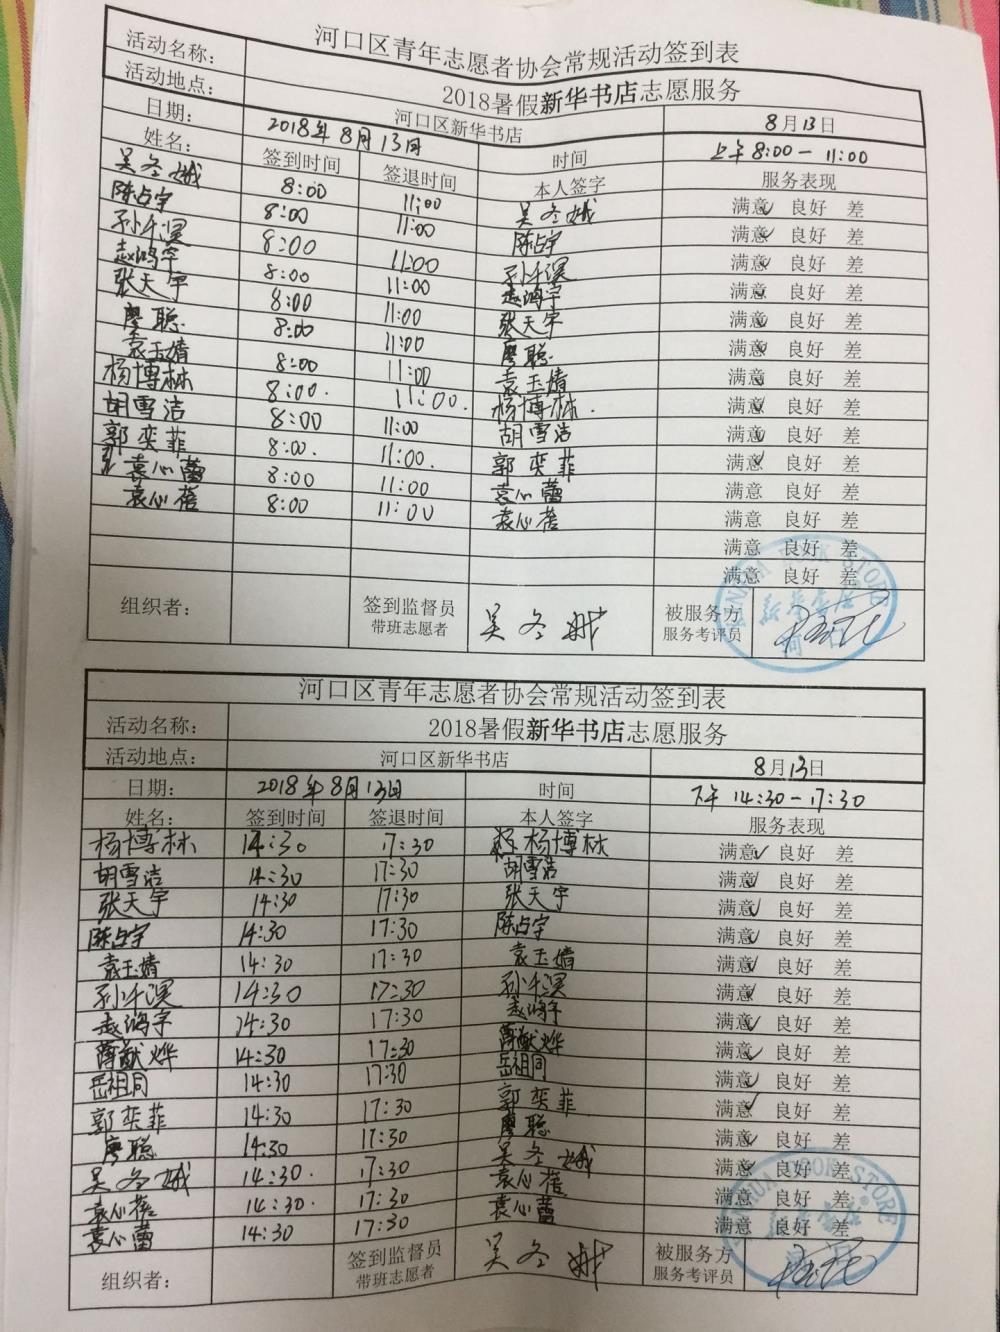 河口区青年志愿者协会常规活动签到表
活动名称： 2018暑假新华书店志愿服务
活动地点： 河口区新华书店 8月13日
日期： 2018年8月13日 时间 上午 8:00－11:00
姓名： 签到时间 签退时间 本人签字 服务表现
吴冬娥 8:00 11:00 吴冬娥 满意✓ 良好 差
陈占宇 8:00 11:00 陈占宇 满意✓ 良好 差
孙千淏 8:00 11:00 孙千淏 满意✓ 良好 差
赵鸿宇 8:00 11:00 赵鸿宇 满意✓ 良好 差
张天宇 8:00 11:00 张天宇 满意✓ 良好 差
廖聪 8:00 11:00 廖聪 满意✓ 良好 差
袁玉婧 8:00 11:00 袁玉婧 满意✓ 良好 差
杨博林 8:00. 11:00. 杨博林. 满意✓ 良好 差
胡雪洁 8:00 11:00 胡雪洁 满意✓ 良好 差
郭奕菲 8:00. 11:00. 郭奕菲 满意✓ 良好 差
袁心蕾 8:00 11:00 袁心蕾 满意 良好 差
袁心蓓 8:00 11:00 袁心蓓 满意 良好 差
满意 良好 差
满意 良好 差
组织者： 签到监督员 吴冬娥 被服务方
带班志愿者 服务考评员
BOOK STORE
新华书店
河口区青年志愿者协会常规活动签到表
活动名称： 2018暑假新华书店志愿服务
活动地点： 河口区新华书店 8月13日
日期： 2018年8月13日 时间 下午 14:30－17:30
姓名： 签到时间 签退时间 本人签字 服务表现
杨博林 14:30 17:30 杨博林 满意✓ 良好 差
胡雪洁 14:30 17:30 胡雪洁 满意✓ 良好 差
张天宇 14:30 17:30 张天宇 满意✓ 良好 差
陈占宇 14:30 17:30 陈占宇 满意✓ 良好 差
袁玉婧 14:30 17:30 袁玉婧 满意✓ 良好 差
孙千淏 14:30 17:30 孙千淏 满意✓ 良好 差
赵鸿宇 14:30 17:30 赵鸿宇 满意✓ 良好 差
薄猷烨 14:30 17:30 薄猷烨 满意✓ 良好 差
岳祖同 14:30 17:30 岳祖同 满意✓ 良好 差
郭奕菲 14:30 17:30 郭奕菲 满意✓ 良好 差
廖聪 14:30 17:30 廖聪 满意✓ 良好 差
吴冬娥 14:30. 17:30 吴冬娥 满意✓ 良好 差
袁心蓓 14:30. 17:30 袁心蓓 满意✓ 良好 差
袁心蕾 14:30 17:30 袁心蕾 满意✓ 良好 差
组织者： 签到监督员 吴冬娥 被服务方
带班志愿者 服务考评员
XINHUA BOOK STORE
新华书店